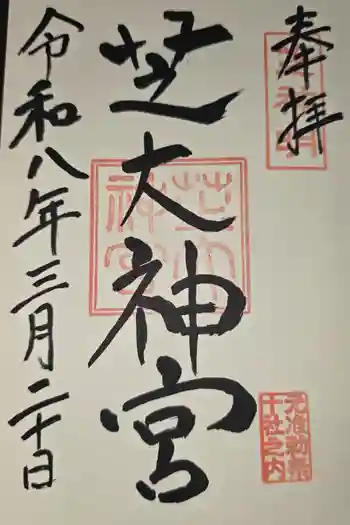 奉拝
芝大神宮
令和八年三月二十日
芝大神宮
元准勅祭
十社之内